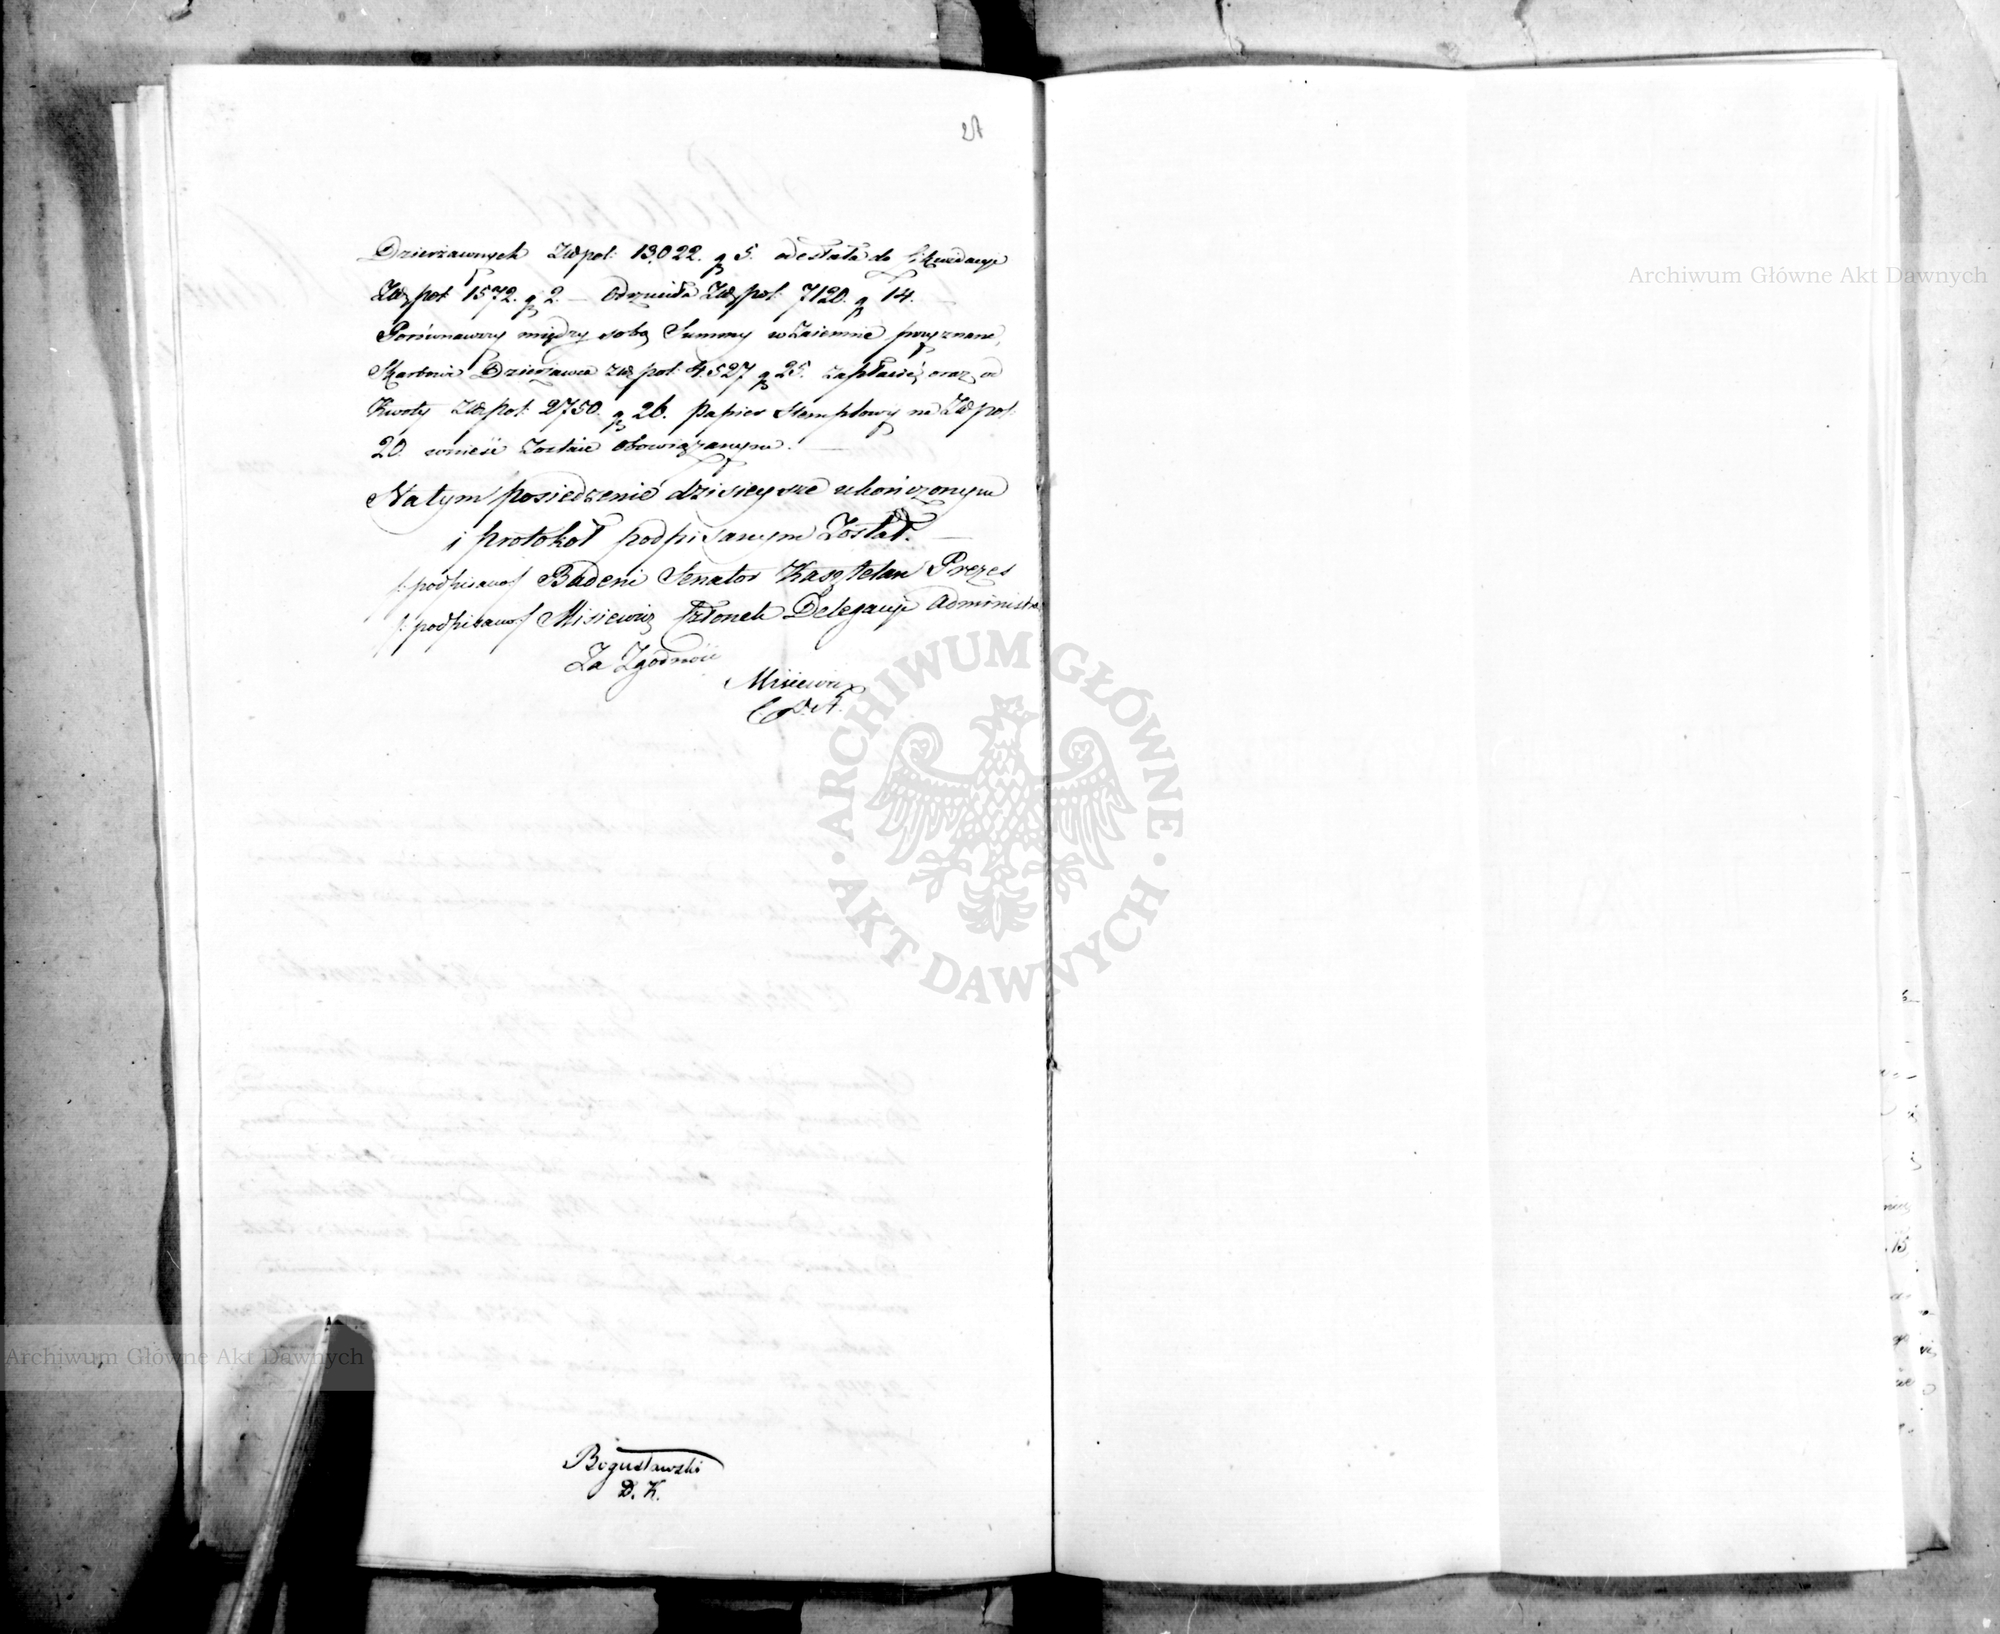 Dzierżawnych Złł pol: 13,022. g 5. odesłała do Likwidacyi
Złł pol: 1572. g 2. — Odrzuciła Złł pol: 7120. g 14.
Porównawszy między sobą Summy wzaiemnie przyznane,
Skarbowi Dzierżawca złł pol: 4,527 g 25. zapłacić, oraz od
Kwoty Złł pol: 2750. g 26. papier stemplowy na Złł pol:
20. wnieść zostaie obowiązanym. —
Na tym posiedzenie dzisieysze ukończonym
i protokół podpisanym został. —
/: podpisano / Badeni Senator Kasztelan Prezes
/: podpisano / Misiewicz Członek Delegacyi Administra
Za Zgodność
Misiewicz
C. D. A.
Bogusławski
D. K.
Archiwum Główne Akt Dawnych
Archiwum Główne Akt Dawnych
· ARCHIWUM GŁÓWNE · AKT DAWNYCH